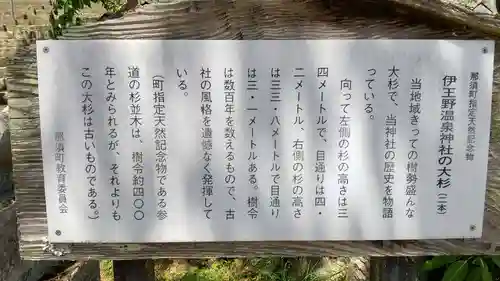 那須町指定天然記念物
伊王野温泉神社の大杉（二本）
当地域きっての樹勢盛んな
大杉で、当神社の歴史を物語
っている。
向って左側の杉の高さは三
四メートルで、目通りは四・
二メートル、右側の杉の高さ
は三三・八メートルで目通り
は三・一メートルある。樹令
は数百年を数えるもので、古
社の風格を遺憾なく発揮して
いる。
（町指定天然記念物である参
道の杉並木は、樹令約四〇〇
年とみられるが、それよりも
この大杉は古いものである。）
那須町教育委員会